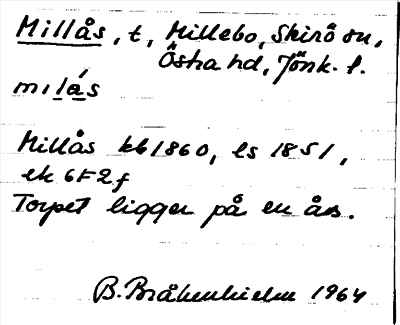 Millås, t, Millebo, Skirö sn,
Östra hd, Jönk. l.
mılá̱s
Millås kb 1860, ls 1851,
ek 6F2f
Torpet ligger på en ås.
B. Bråkenhielm 1964